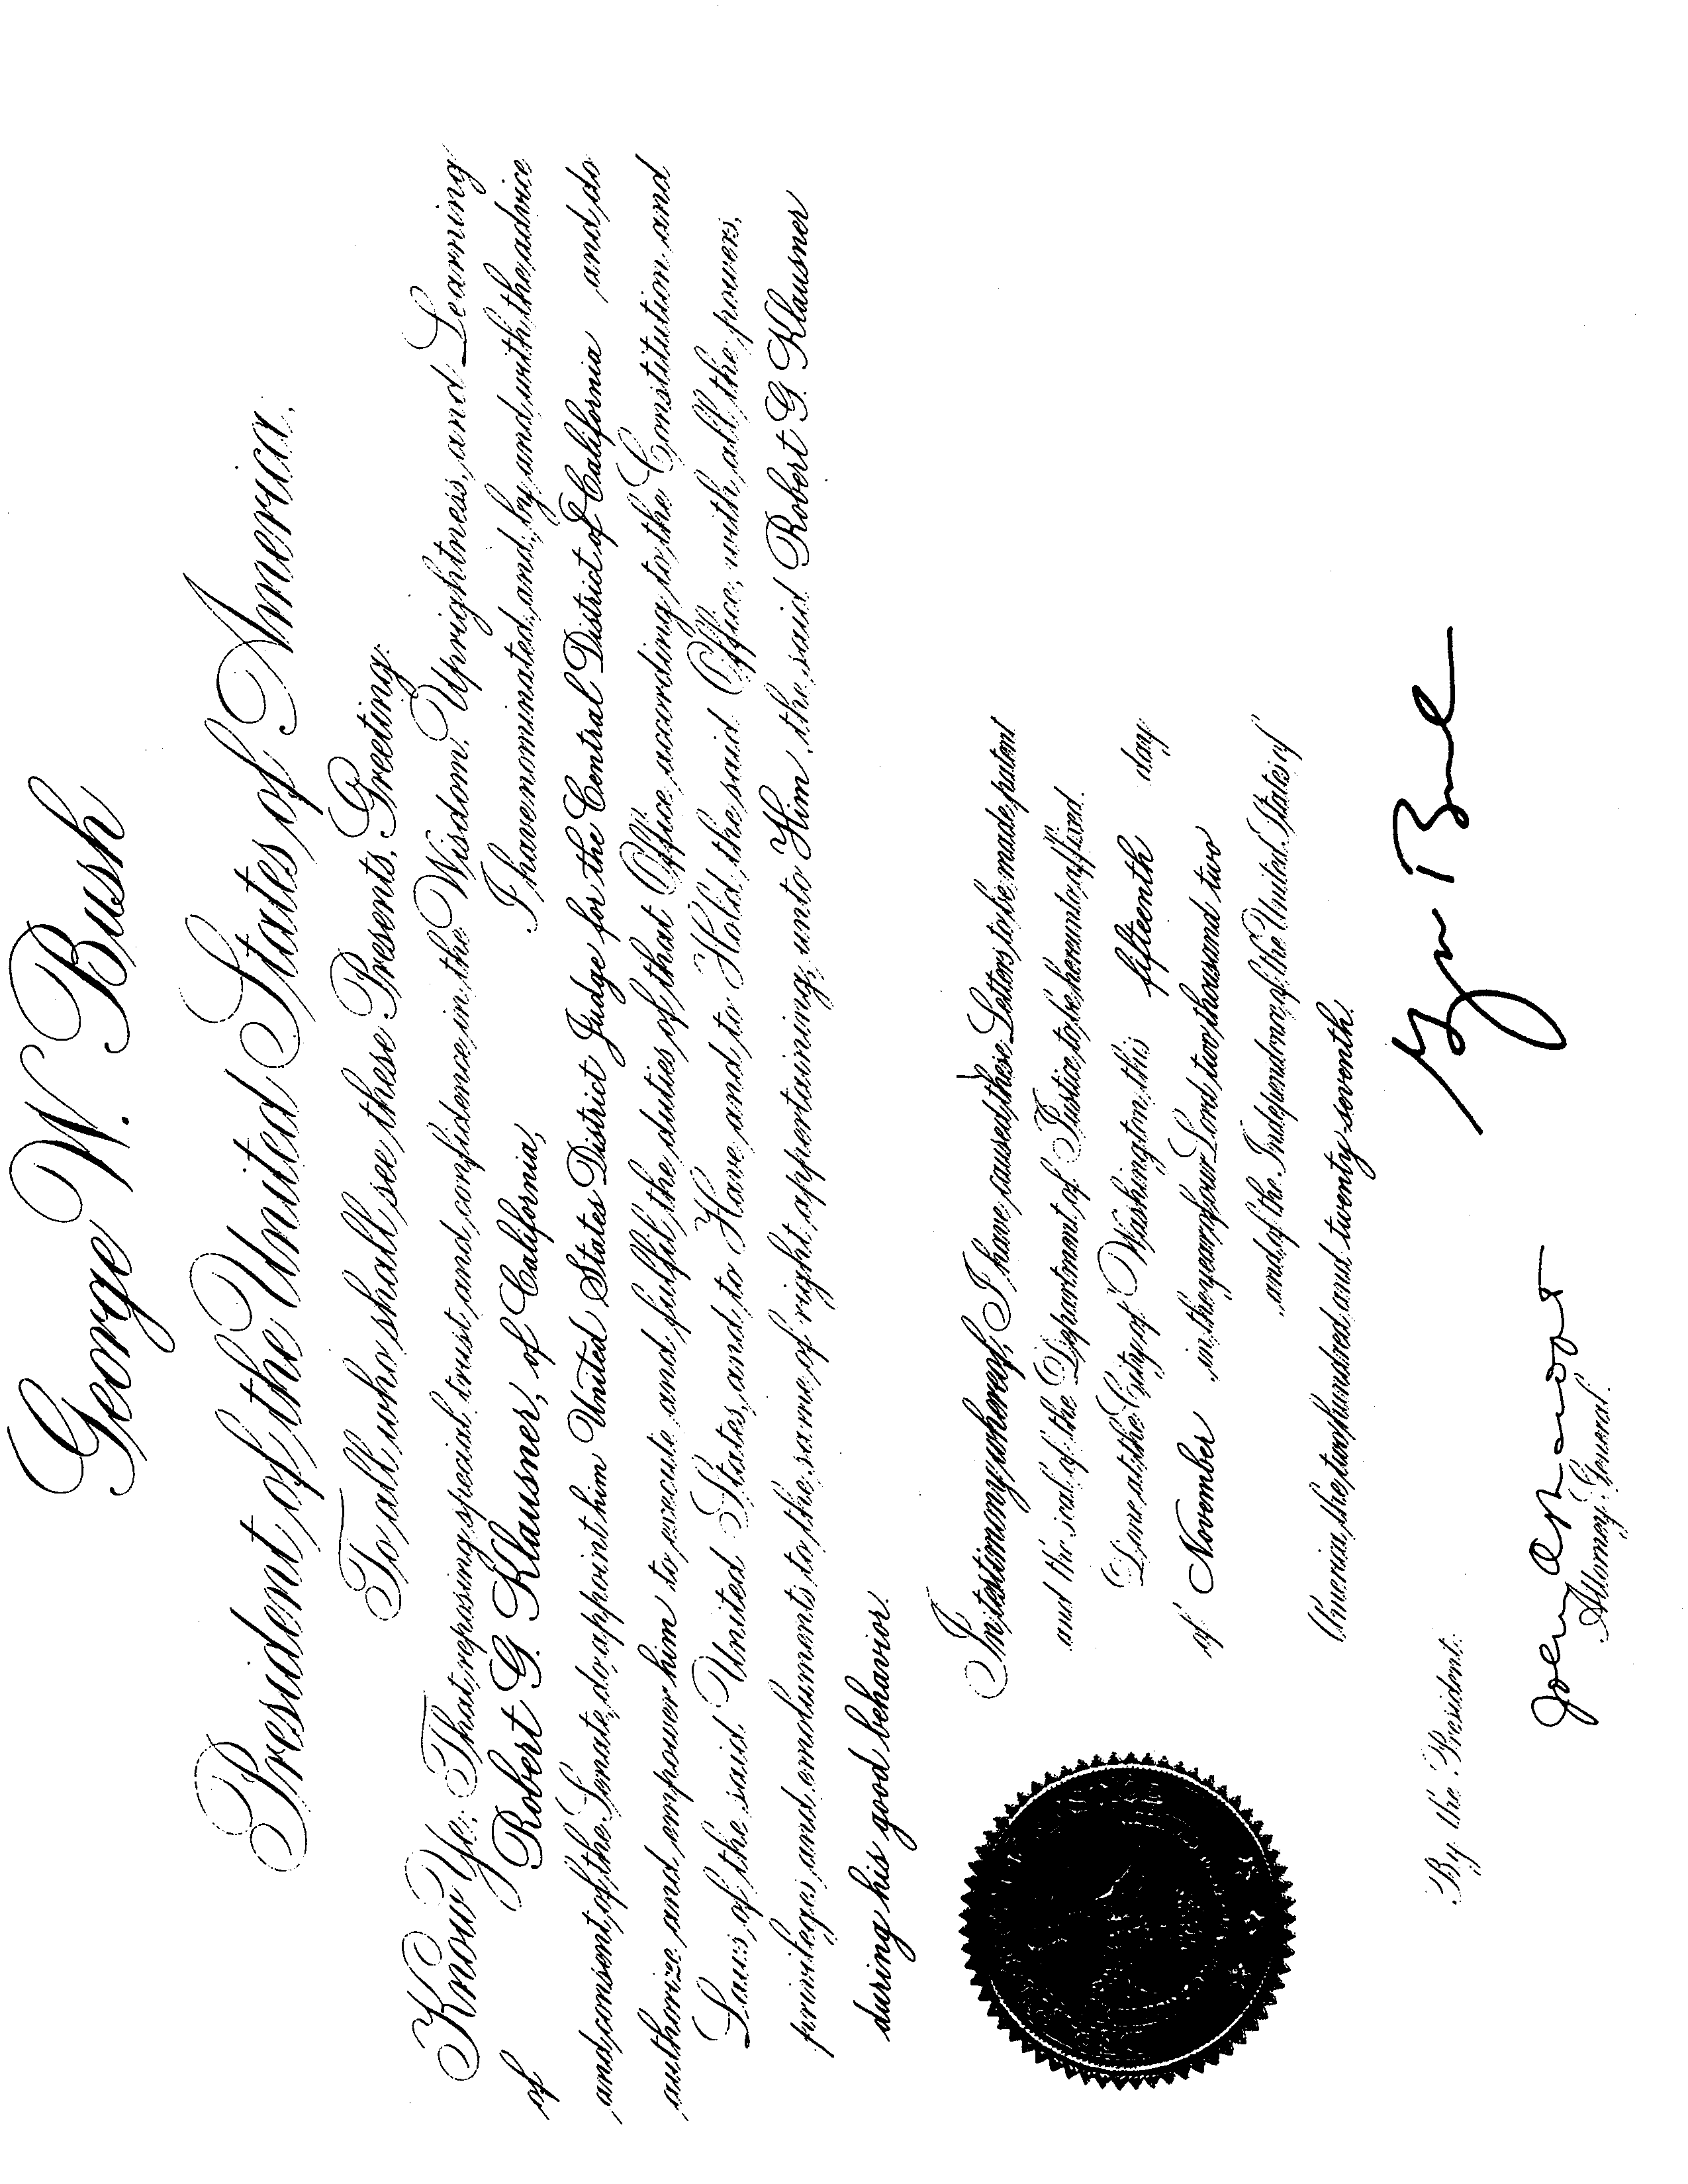 George W. Bush
President of the United States of America.
To all who shall see these Presents, Greeting:
Know Ye; That reposing special trust and confidence in the Wisdom, Uprightness, and Learning
of Robert G. Klausner, of California, I have nominated, and, by and with the advice
and consent of the Senate, do appoint him United States District Judge for the Central District of California and do
authorize and empower him to execute and fulfil the duties of that Office according to the Constitution and
Laws of the said United States, and to Have and to Hold the said Office, with all the powers,
privileges and emoluments to the same of right appertaining, unto Him, the said Robert G. Klausner
during his good behavior.
In testimony whereof, I have caused these Letters to be made patent
and the seal of the Department of Justice to be hereunto affixed.
Done at the City of Washington this fifteenth day
of November in the year of our Lord two thousand two
and of the Independence of the United States of
America the two hundred and twenty-seventh.
By the President:
John Ashcroft
Attorney General.